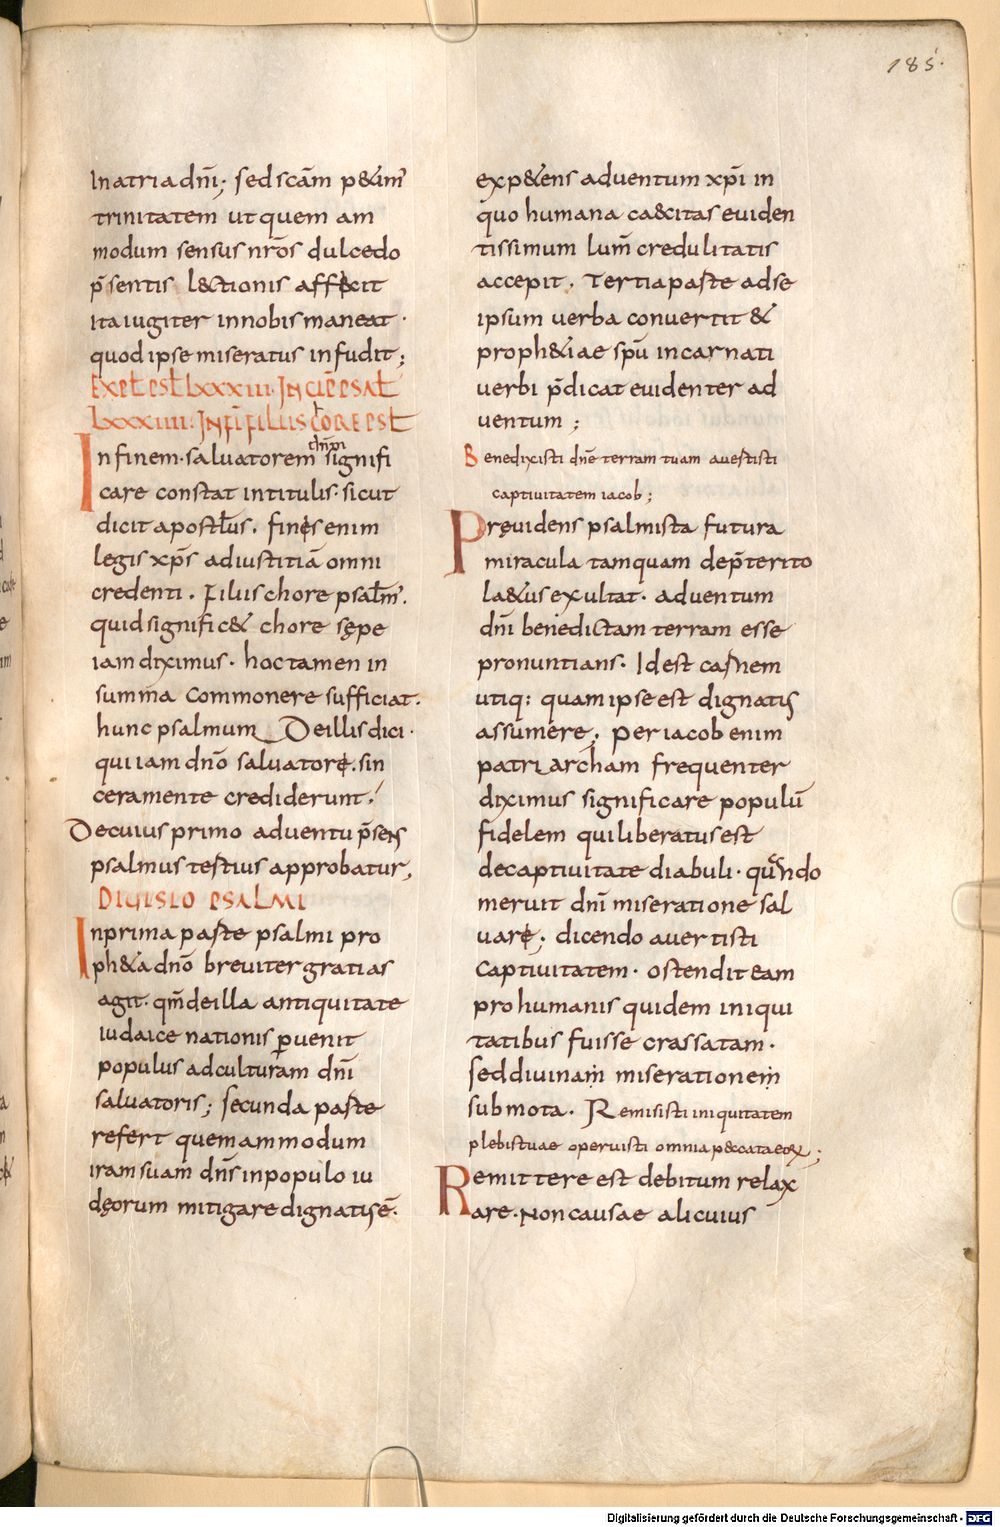 185.
In atria dn̄i; sed scām p&im̄
trinitatem ut quem am
modum sensus nr̄os dulcedo
p̄sentis l&tionis affecit
ita iugiter in nobis maneat ·
quod ipse miseratus infudit;
EXPƚ PSƚ LXXXIII· INCIP̄ PSAƚ
LXXXIIII: IN FĪ FILIIS CORE PSƚ
In finem · salvatorem dn̄m signifi
care constat in titulis · sicut
dicit apostƚus . finis enim
legis xp̄s ad iustitiā omni
credenti . Filiis chore psalm̄.
quid signific& chore sępe
iam diximus · hoc tamen in
summa commonere sufficiat.
hunc psalmum De illis dici ·
qui iam dn̄o salvatore . sin
cera mente crediderunt;
De cuius primo adventu p̄sens
psalmus testius approbatur,
DIVISIO PSALMI
In prima parte psalmi pro
ph&a dn̄o breviter gratias
agit · qm̄ de illa antiquitate
iudaice nationis ꝑuenit
populus ad culturam dn̄i
salvatoris; secunda parte
refert quemammodum
iram suam dn̄s in populo iu
dęorum mitigare dignatus ē·
exp&ens adventum xp̄i in
quo humana ca&citas eviden
tissimum lum̄ credulitatis
accepit . Tertia parte ad se
ipsum verba convertit &
proph&iae sp̄u incarnati
verbi p̄dicat evidenter ad
ventum ;
Benedixisti dn̄e terram tuam avertisti
captivitatem iacob;
Pręvidens psalmista futura
miracula tamquam dep̄terito
la&us exultat · adventum
dn̄i benedictam terram esse
pronuntians · Id est carnem
utiq: quam ipse est dignatus
assumere; per iacob enim
patriarcham frequenter
diximus significare populū
fidelem qui liberatus est
de captivitate diabuli · quando
meruit dn̄i miseratione sal
vare; dicendo avertisti
captivitatem · ostendit eam
pro humanis quidem iniqui
tatibus fuisse crassatam ·
sed divinam miserationem
submota . Remisisti iniquitatem
plebis tuae operuisti omnia p&cata eoꝝ;
Remittere est debitum relax
are · Non causae alicuius
Digitalisierung gefördert durch die Deutsche Forschungsgemeinschaft - DFG